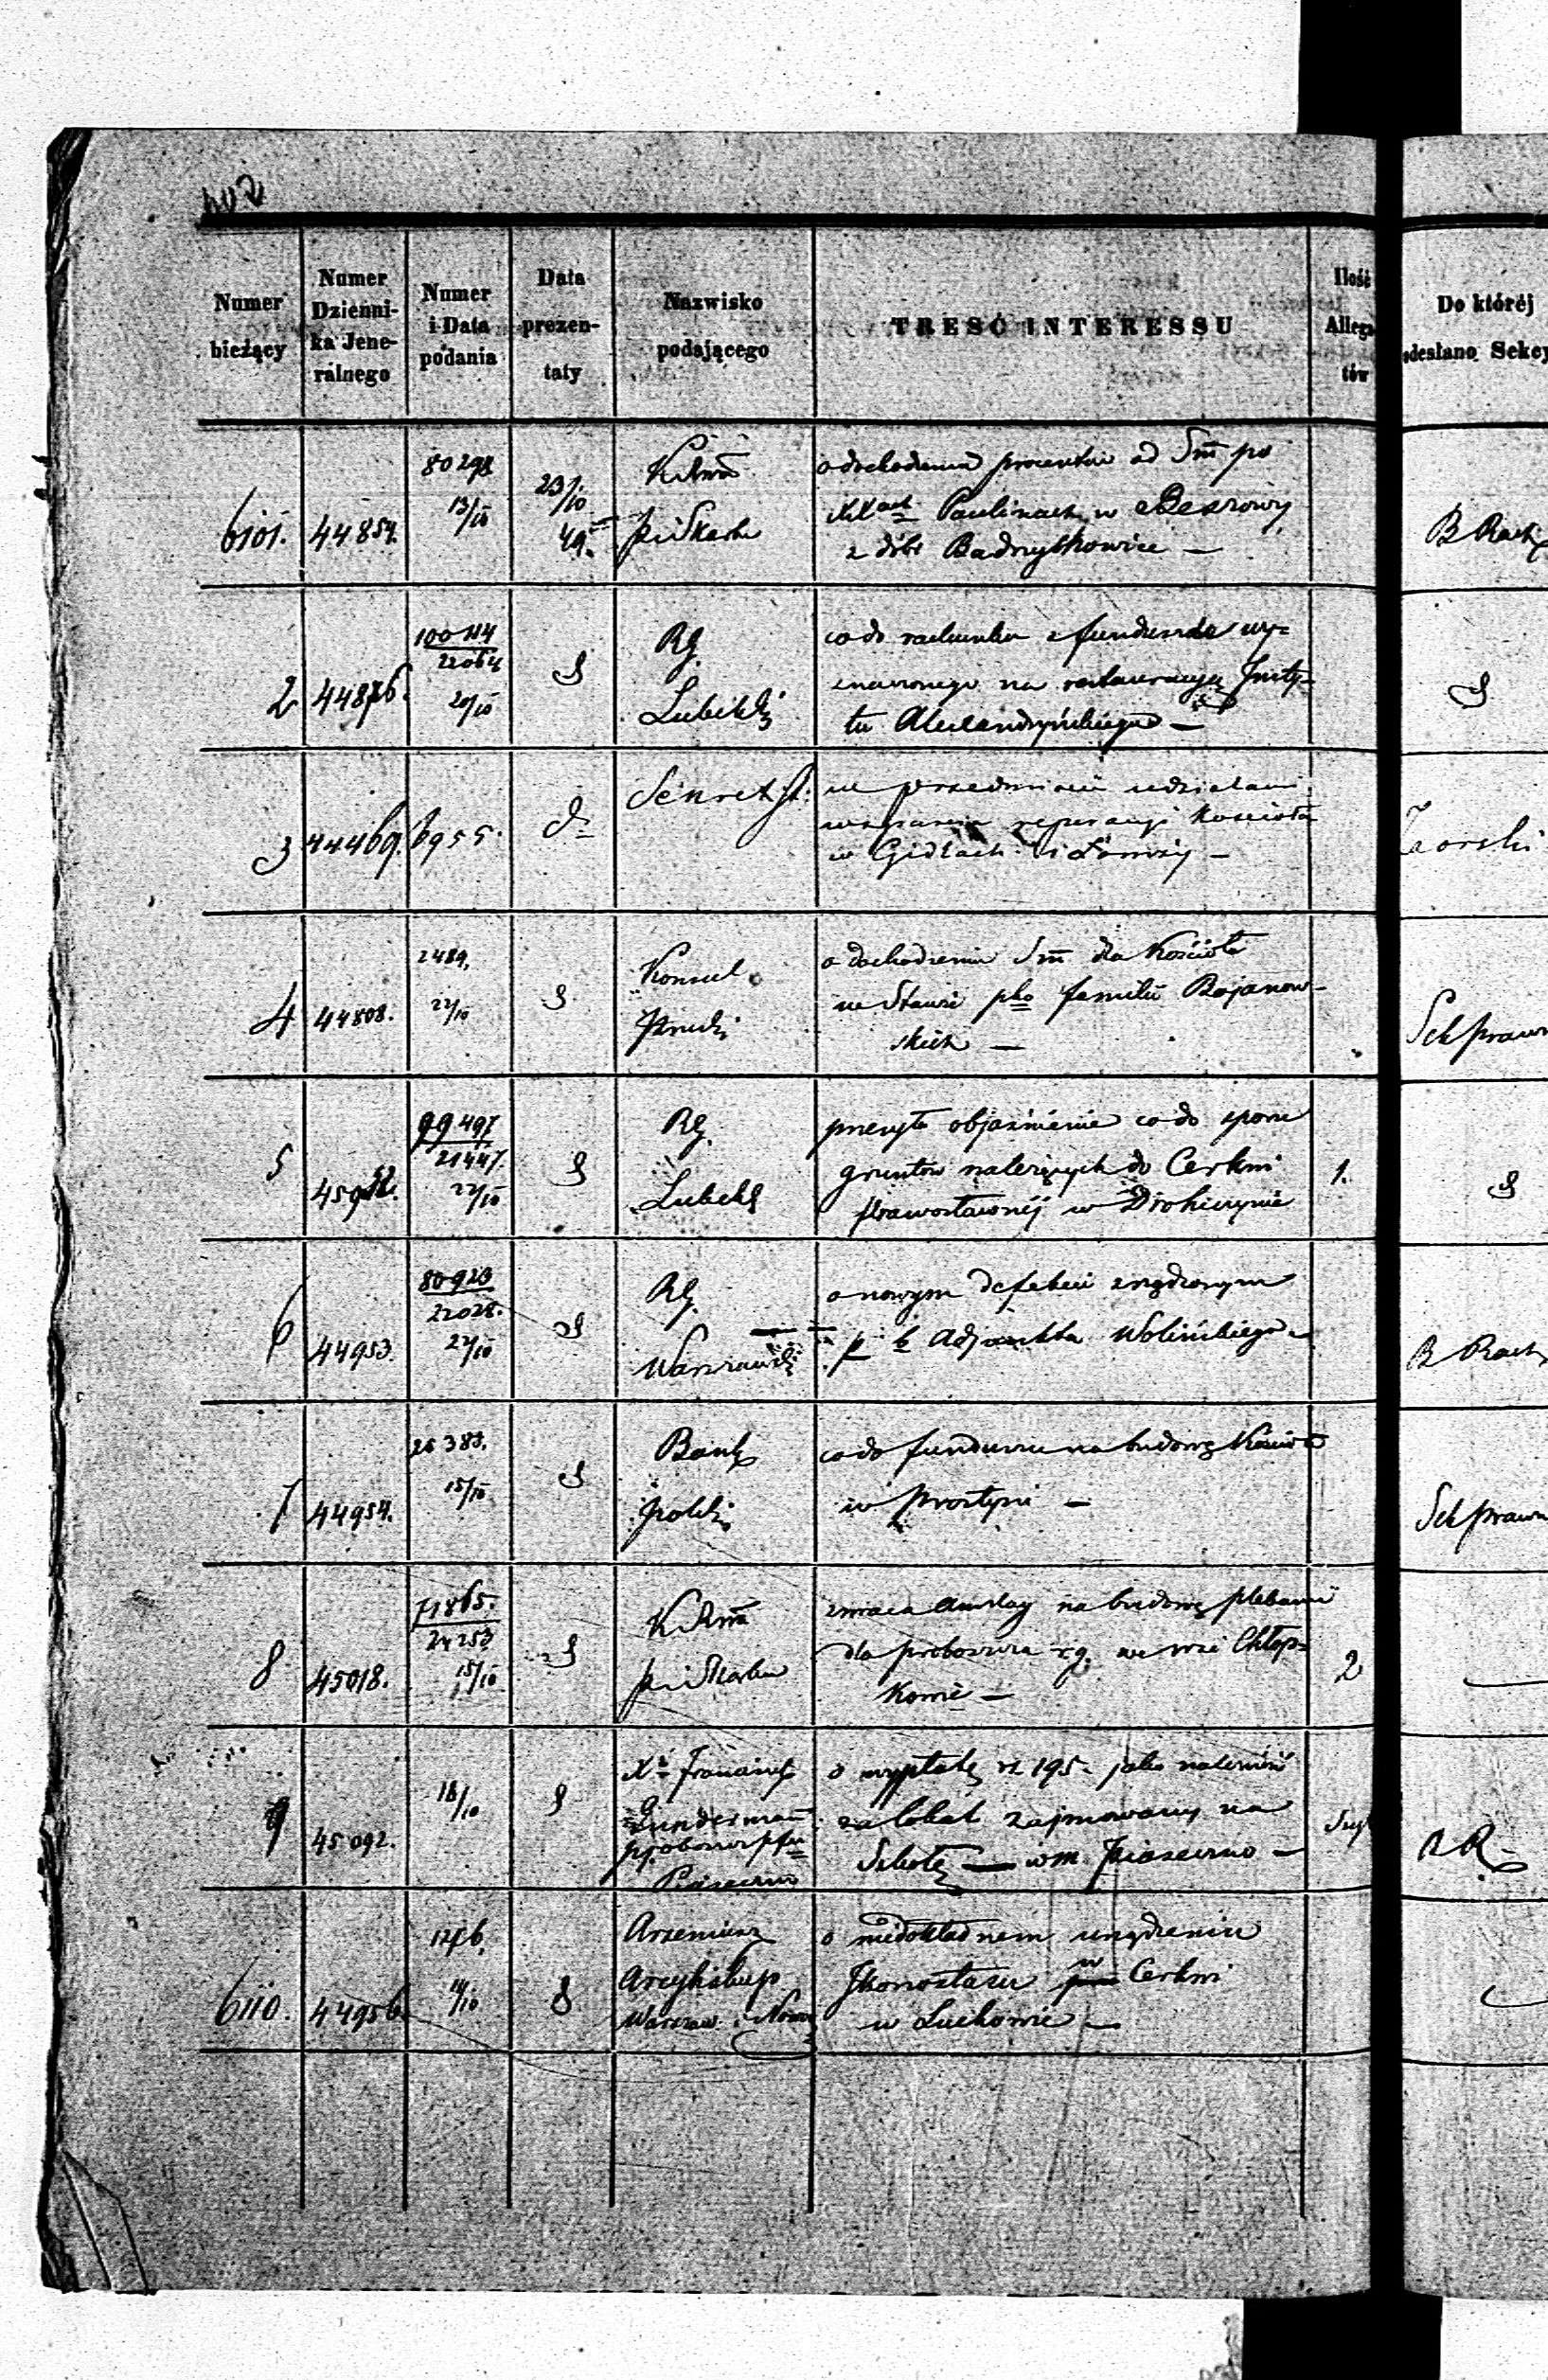 402
Numer bieżący
Numer Dzienni-ka Jene-ralnego
Numer i Data podania
Data prezen-taty
Nazwisko podającego
TRESĆ INTERESSU
Ilość Allega tów
Do któréj odesłano Sekcy
6101. 44854. 80298 13/10 23/10 49.
o dochodzenia procentów od Sm̄ po
XXach Paulinach w
z dóbr —
B Rach
2 44876. 100414 22064 20/10 Rg. Lubelski
co do rachunku z funduszu wy-
znaczonego na restauracyę Insty-
tu Alexandryńskiego —
3 44469. 6955. d° Sekret St:
w przedmiocie udzielania
wsparcia reperacyi Kościoła
w Gidlach i Łomży —
4 44808. 2489. 22/10 Konsul Pruski
o dochodzeniu Sm̄ dla Kościoła
w Stawie pko familii Bojanow-
skich —
Sek prawn
5 99497 21447 22/10 Rg. Lubelsk
przesyła objaśnienie co do sporu
gruntów należących do Cerkwi
prawosławnéj w Drohiczynie
1.
6 44953. 80923 22028. 22/10 Rg. Warszawski
o nowym defekcie zrządzonym
p. b. Adjunkta Wolińskiego
B Rach
7 44954. 26383. 15/10 Bank Polski
co do funduszu na budowę Kościoła
w Prostyni —
Sek prawn
8 45018. 71865. 24253 15/10
zwraca Anszlag na budowę plebanii
dla proboszcza r.g. we wsi Chłop-
kowie —
2
9 45092. 18/10 Xdz Franciszek
proboszcz pfii Piaseczno
o wypłatę rs 195. jako należność
za lokal zajmowany na
Szkołę — w m. Piaseczno —
B R.
6110. 44956 1276. 14/10 Arseniusz
Arcybiskup
Warszaw. i Nowo
o niedokładnem urządzeniu
Ikonostasu w Cerkwi
w —